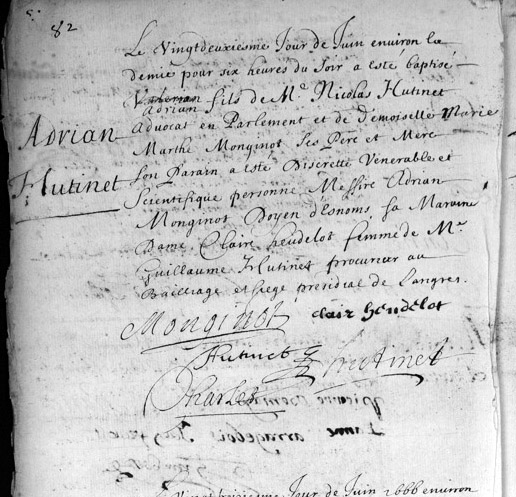 82
Le Vingtdeuxiesme Jour de Juin environ la
demie pour six heures du soir a esté baptisé
Adrian fils de Me. Nicolas Hutinet
Advocat en Parlement et de Demoiselle Marie
Marthe Monginot ses Pere et Mere
son Parain a esté Discrette Venerable et
Scientifique personne Messire Adrian
Monginot Doyen d'Esnoms, sa Maraine
Dame Claire heudelot femme de Me.
Guillaume Hutinet procureur au
Bailliage et siege presidial de Langres.
Adrian
Hutinet
Monginot clair heudelot
Hutinet Hutinet
Charles
Vingt troisiesme Jour de Juin 1666 environ